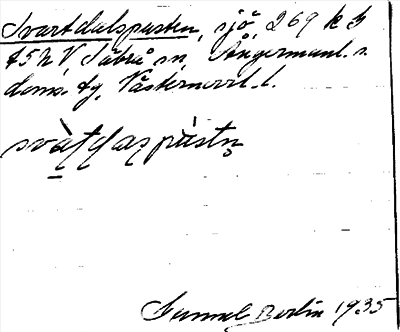 Svartdalspusten, sjö, 269 k 3
45 h V Säbrå sn, Ångermanl. s.
doms. tg, Västernorrl. l.
Gunnel Berlin 1935